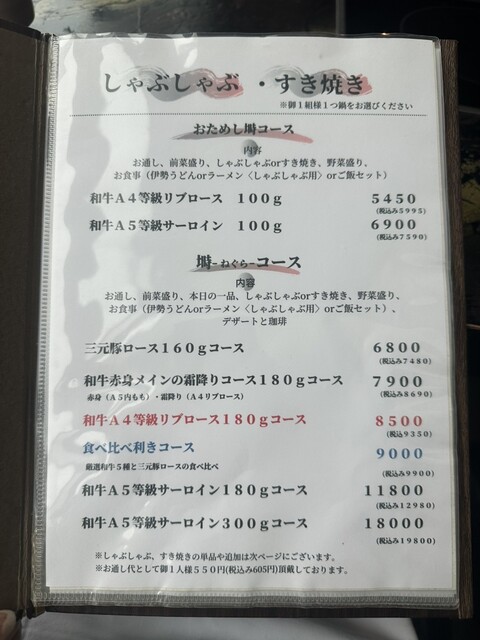 しゃぶしゃぶ ・すき焼き
※御1組様1つ鍋をお選びください
おためし塒コース
内容
お通し、前菜盛り、しゃぶしゃぶorすき焼き、野菜盛り、
お食事（伊勢うどんorラーメン〈しゃぶしゃぶ用〉orご飯セット）
和牛A4等級リブロース 100g 5450
(税込み5995)
和牛A5等級サーロイン 100g 6900
(税込み7590)
塒-ねぐら-コース
内容
お通し、前菜盛り、本日の一品、しゃぶしゃぶorすき焼き、野菜盛り、
お食事（伊勢うどんorラーメン〈しゃぶしゃぶ用〉orご飯セット）、
デザートと珈琲
三元豚ロース160gコース 6800
(税込み7480)
和牛赤身メインの霜降りコース180gコース 7900
赤身（A5内もも）・霜降り（A4リブロース） (税込み8690)
和牛A4等級リブロース180gコース 8500
(税込9350)
食べ比べ利きコース 9000
厳選和牛5種と三元豚ロースの食べ比べ (税込み9900)
和牛A5等級サーロイン180gコース 11800
(税込み12980)
和牛A5等級サーロイン300gコース 18000
(税込み19800)
※しゃぶしゃぶ、すき焼きの単品や追加は次ページにございます。
※お通し代として御1人様550円(税込み605円)頂戴しております。